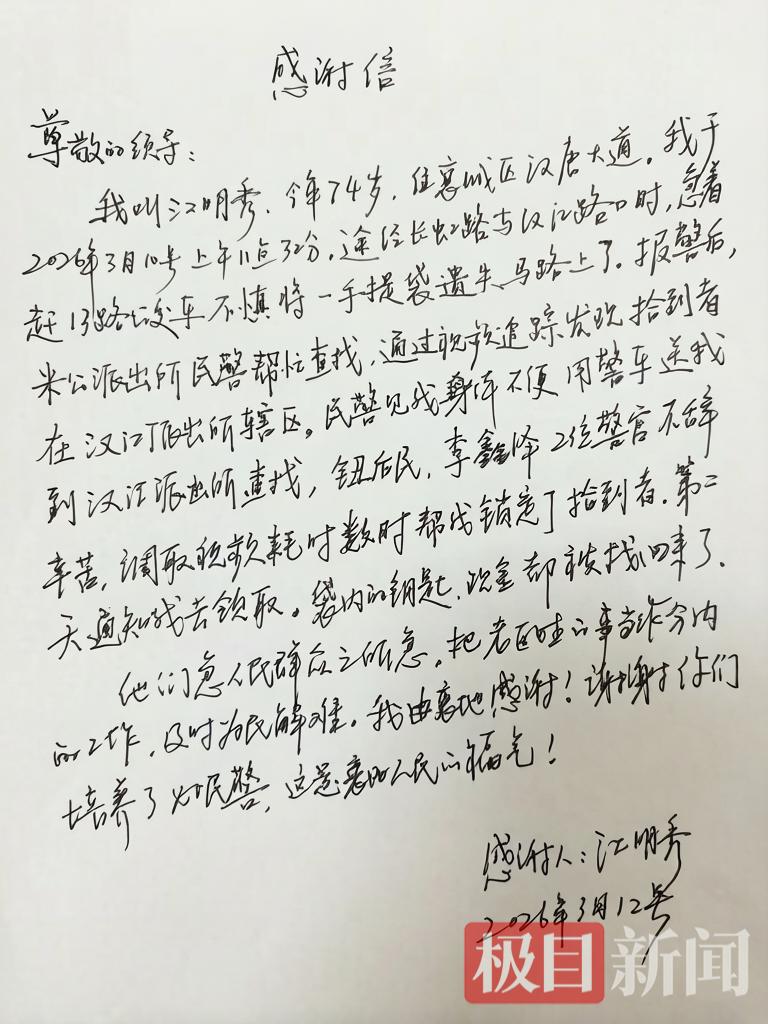 感谢信
尊敬的领导：
我叫江明秀，今年74岁，住襄城区汉唐大道。我于
2026年3月10号上午11点32分，途经长虹路与汉江路口时，急着
赶13路公交车不慎将一手提袋遗失马路上了。报警后，
米公派出所民警帮忙查找，通过视频追踪发现拾到者
在汉江派出所辖区。民警见我身体不便用警车送我
到汉江派出所查找，钮后民，李鑫泽2位警官不辞
辛苦，调取视频耗时数时帮我锁定了拾到者。第二
天通知我去领取。袋内的钥匙、现金都被找回来了。
他们急人民群众之所急，把老百姓的事当作分内
的工作，及时为民解难。我由衷地感谢！谢谢你们
培养了好民警，这是襄阳人民的福气！
感谢人：江明秀
2026年3月12号
极目新闻